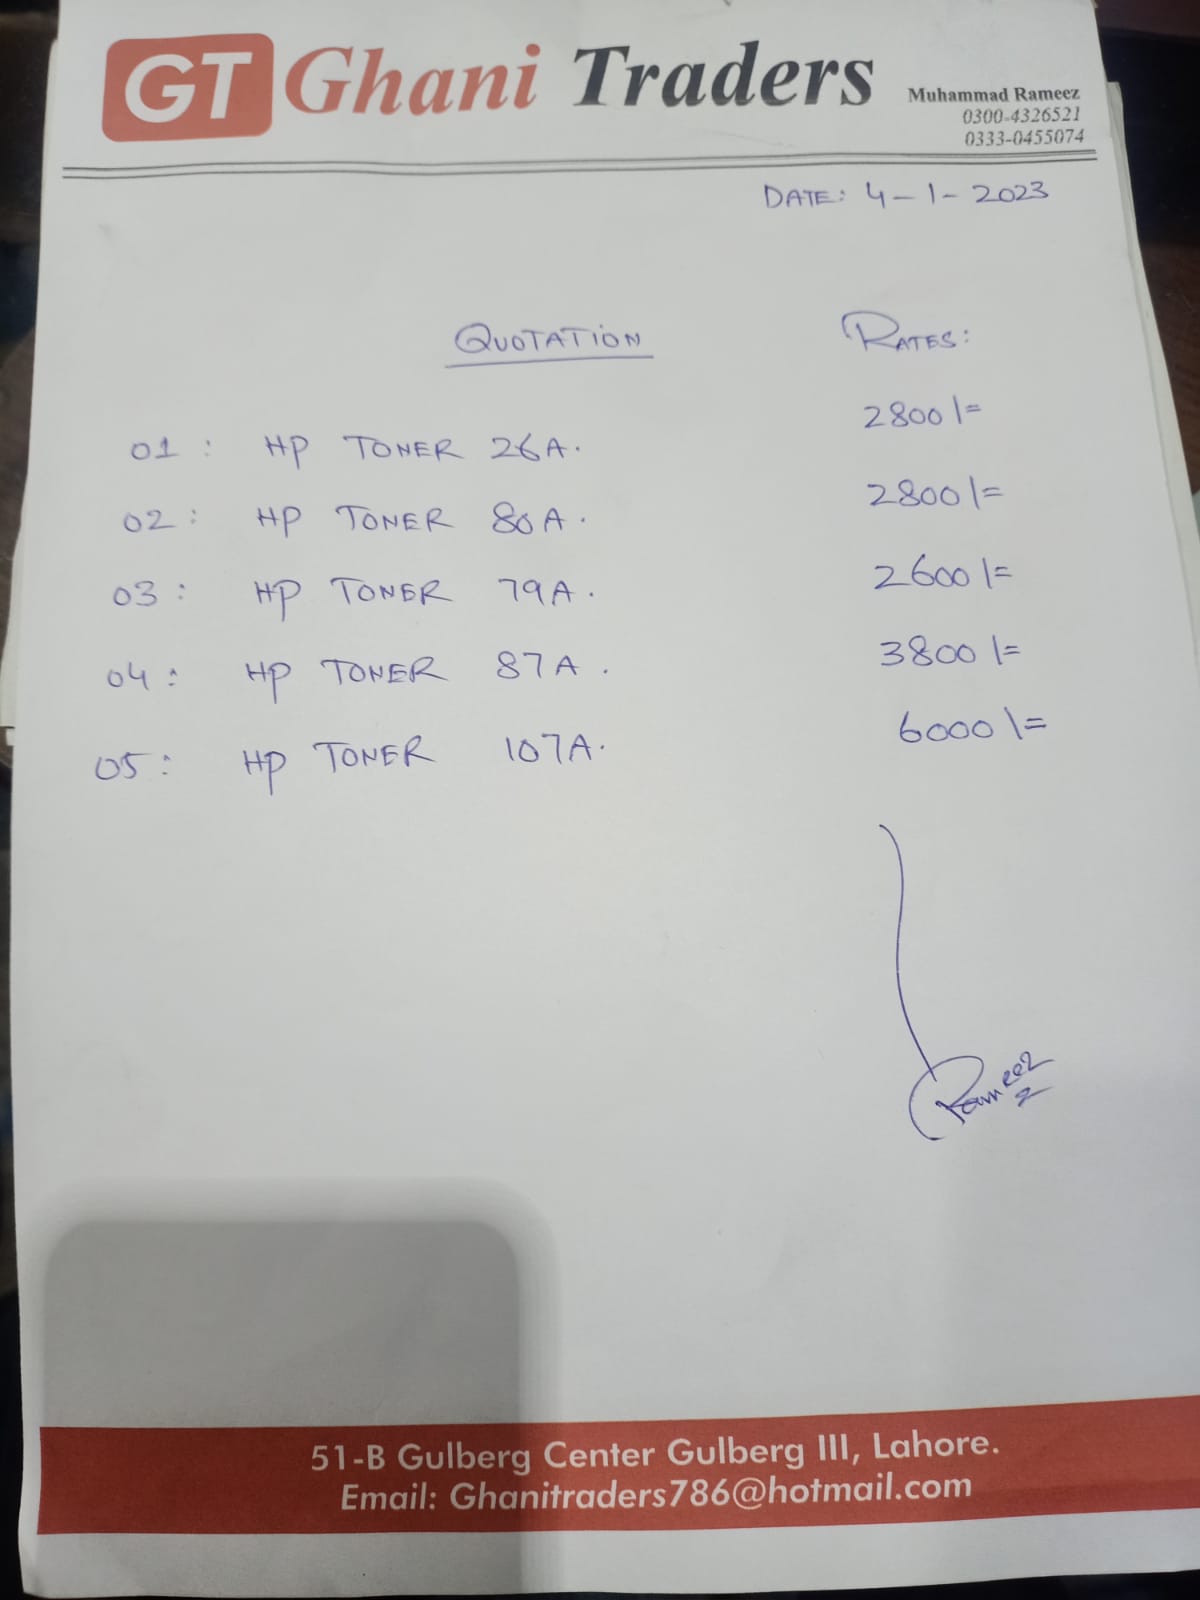 GT Ghani Traders
Muhammad Rameez
0300-4326521
0333-0455074
DATE: 4-1-2023
QUOTATION RATES:
01: HP TONER 26A. 2800/=
02: HP TONER 80A. 2800/=
03: HP TONER 79A. 2600/=
04: HP TONER 87A. 3800/=
05: HP TONER 107A. 6000/=
Rameez
51-B Gulberg Center Gulberg III, Lahore.
Email: Ghanitraders786@hotmail.com